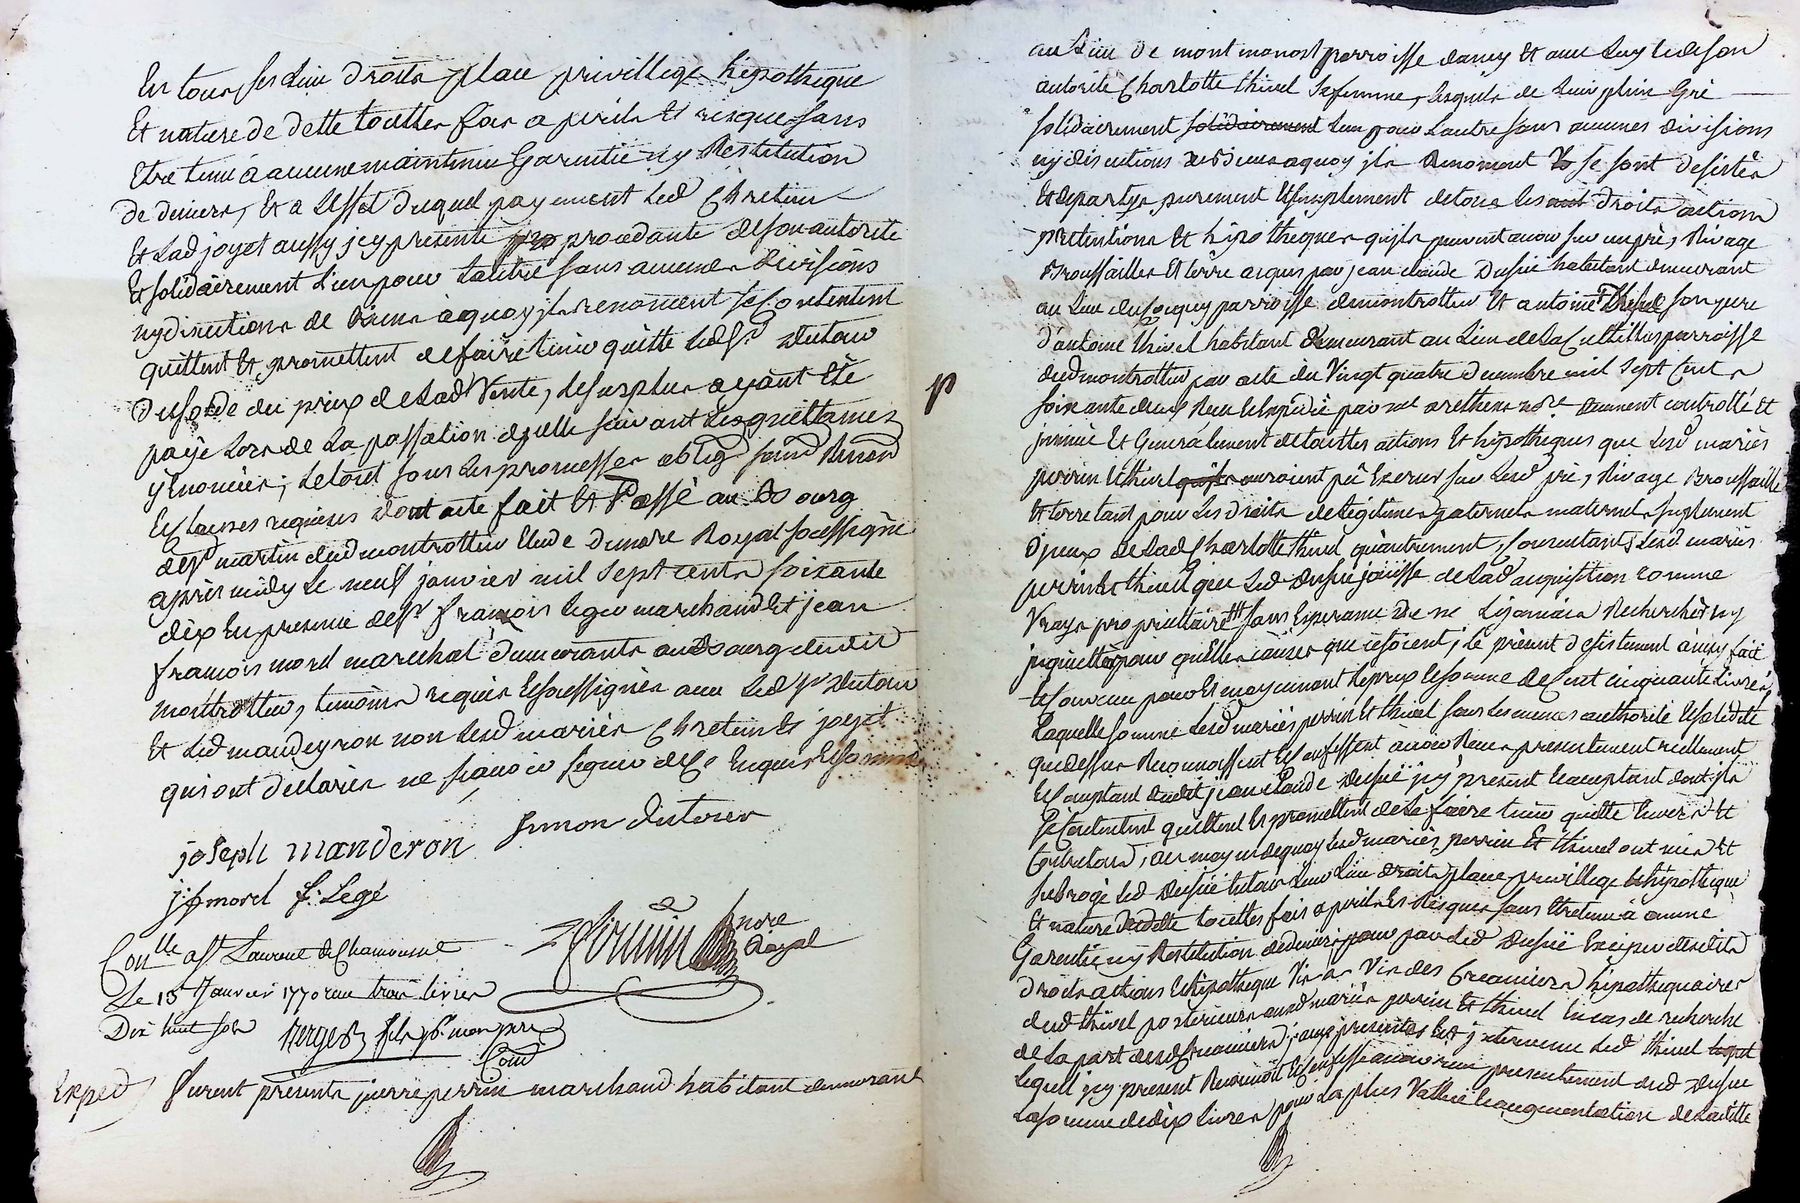 En tous ses Lieu droits place privillege hipotheque
Et nature de dette touttes fois a perils Et risques sans
Etre tenu à aucune maintenue Garentie ny Restitution
de deniers, Et a L'effet duquel payement Led Chretien
Et Lad joyet aussy jcy presente procedante de son autorité
Et solidairement L'un pour L'autre sans aucunes divisions
ny discutions de biens à quoy jls renoncent se Contentent
quittent Et promettent de faire tenir quitte Led Sr Dutour
du solde du prix de Lad Vente, Le surplus ayant Eté
payé Lors de La passation d'jcelle suivant Les quittances
y Enoncées, Le tout sous Les promesses oblig Soumd Renond
Et clauses requises dont acte fait Et Passé au Bourg
de St martin dud montrottier Etude du nore Royal soussigné
après midy Le neuf janvier mil sept cents soixante
dix En presence de Sr françois Leger marchand Et jean
françois morel marechal demeurants au Bourg dudit
montrottier, temoins requis Et soussignés avec Led Sr Dutour
Et Led mandeyron non Lesd mariés Chretien Et joyet
qui ont declarés ne sçavoir signer de ce Enquis Et sommés
joseph manderon Simon dutour
jf morel f: Legé
nore Royal
Conlle a St Laurent de Chamousset
Le 15 Janvier 1770 reçu trois livres
Dix huit sols
Exped Furent présents pierre perrin marchand habitant demeurant
au Lieu de mont monost parroisse dancy Et avec Luy Et de son
autorité Charlotte thivel sa femme, Lesquels de Leur plein Gré
solidairement solidairement L'un pour L'autre sans aucunes divisions
ny discutions de biens a quoy jls Renoncent se sont desistés
Et departys purement Et simplement de tous les droits actions
prettentions Et hipotheques qu'jls peuvent avoir sur un pré, Rivage
Broussailles Et terre acquis par jean claude Dussué habitant demeurant
au Lieu du parroisse de montrottier Et antoine Thivel son pere
d'antoine thivel habitant demeurant au Lieu de La parroisse
dud montrottier par acte du Vingt quatre decembre mil sept Cents
soixante deux Reçu Et Expédié par me nore duement controllé Et
jnsinué Et Generalement de touttes actions Et hipotheques que Lesd mariés
perrin Et thivel auroient pû Exercer sur Lesd pré, Rivage Broussaille
Et terre tant pour Les droits de Legitimes paternels maternels suplement
d'jceux de Lad Charlotte thivel qu'autrement, Consentants Lesd mariés
perrin Et thivel que Led Dussué jouisse de Lad acquisition comme
Vraye propriettaire sans Esperance De ne L'y jamais Rechercher ny
jnquietter pour quelles causes que ce soient, Le présent desistement ainsy fait
Et Convenu pour Et moyennant Le prix Et somme de Cent cinquante Livres
Laquelle somme Lesd mariés perrin Et thivel sous Les memes authorité Et solidité
que dessus Reconnoissent Et Confessent avoir Reçu presentement reellement
Et Comptant dudit jean claude Dussué jcy present Et acceptant dont jls
se Contentent quittent Et promettent de Le faire tenir quitte Envers Et
Contre tous, au moyen de quoy Lesd mariés perrin Et thivel ont mis Et
subrogé Led Dussué En tous Leur Lieu droits place privillege Et hipotheque
Et nature de dette touttes fois a perils Et Risques sans Etre tenu à aucune
Garentie ny Restitution de deniers pour par Led Dussué Exciper desdits
droits actions Et hipotheque Vis a Vis des Creanciers hipothequaires
dud thivel posterieurs auxd mariés perrin Et thivel En cas de recherche
de La part desd Creanciers, aux presentes Est jntervenu Led thivel
Lequel jcy present Reconnoit Et Confesse avoir reçu presentement dud Dussué
La somme de dix Livres pour La plus Vallue Et augmentation de Laditte